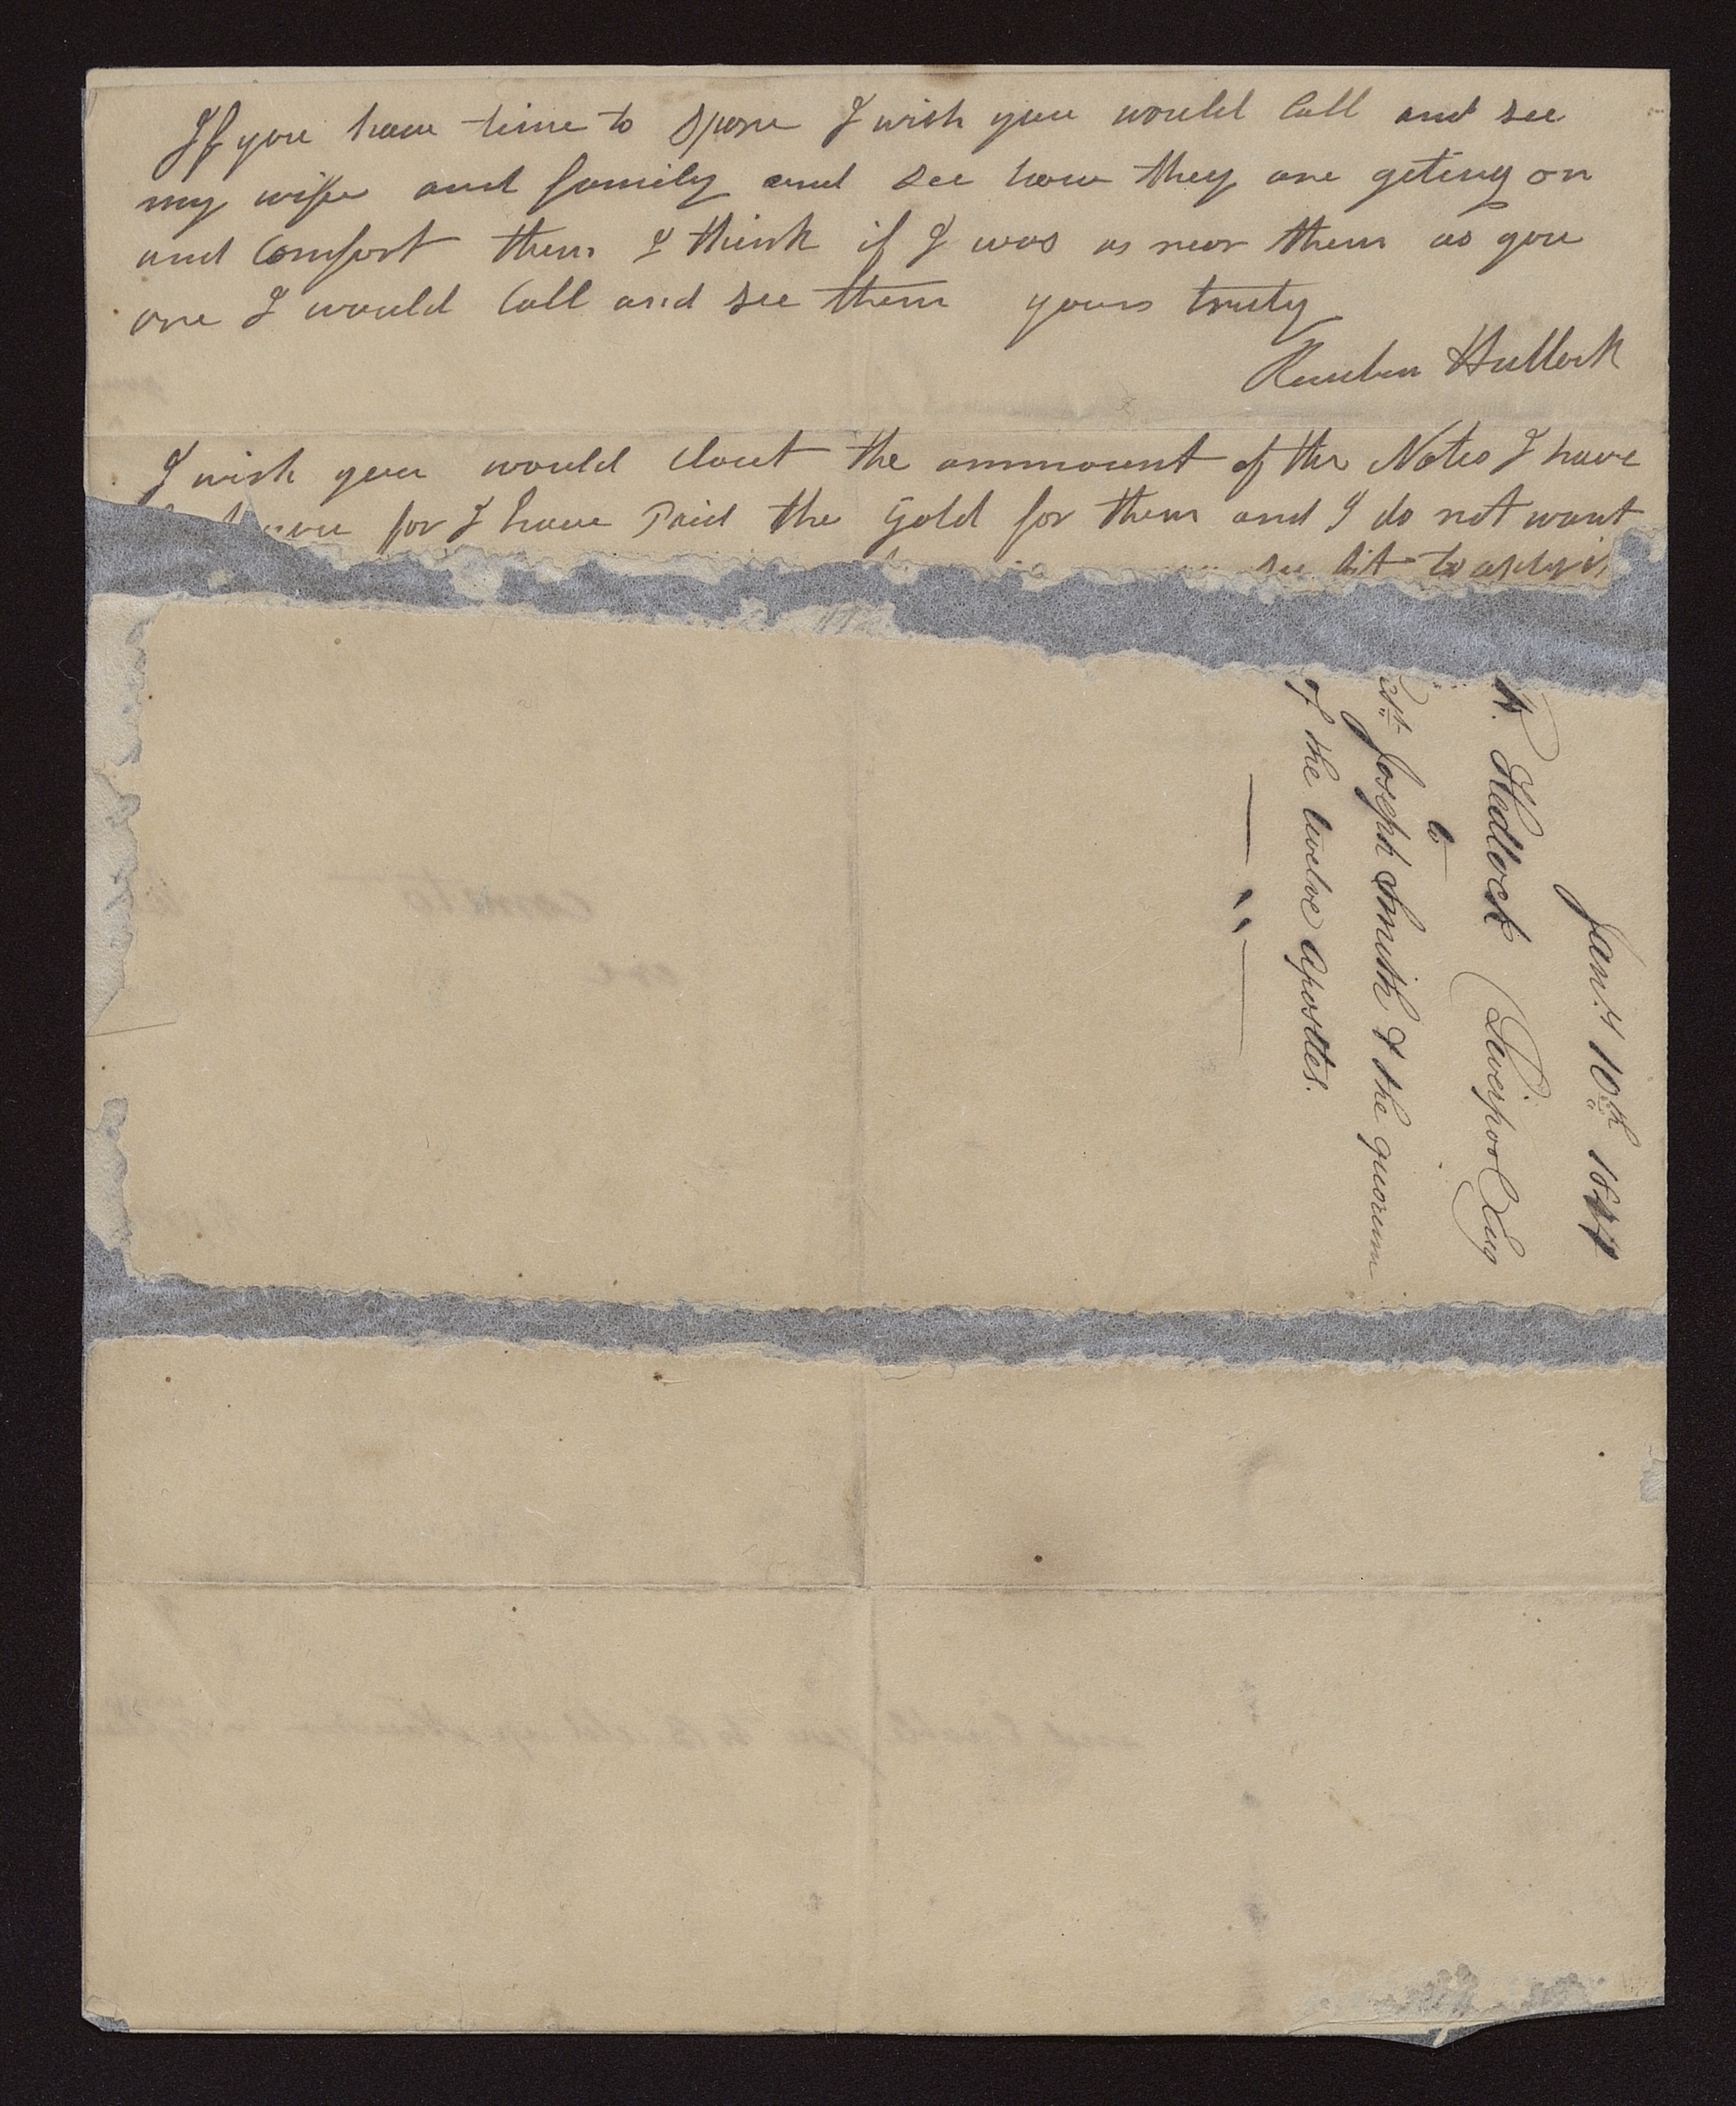 If you have time to spare I wish you would Call and see
my wife and family and see how they are geting on
and Comfort them I think if I was as near them as you
are I would Call and see them yours truly
Reuben Hedlock
I wish you would the ammount of the Notes I have
for I have Paid the Gold for them and I do not want
see fit to apply
Jany. 10th 1844
R. Hedlock Liverpool Eng
to
Joseph Smith & the quorum
of the twelve apostles.